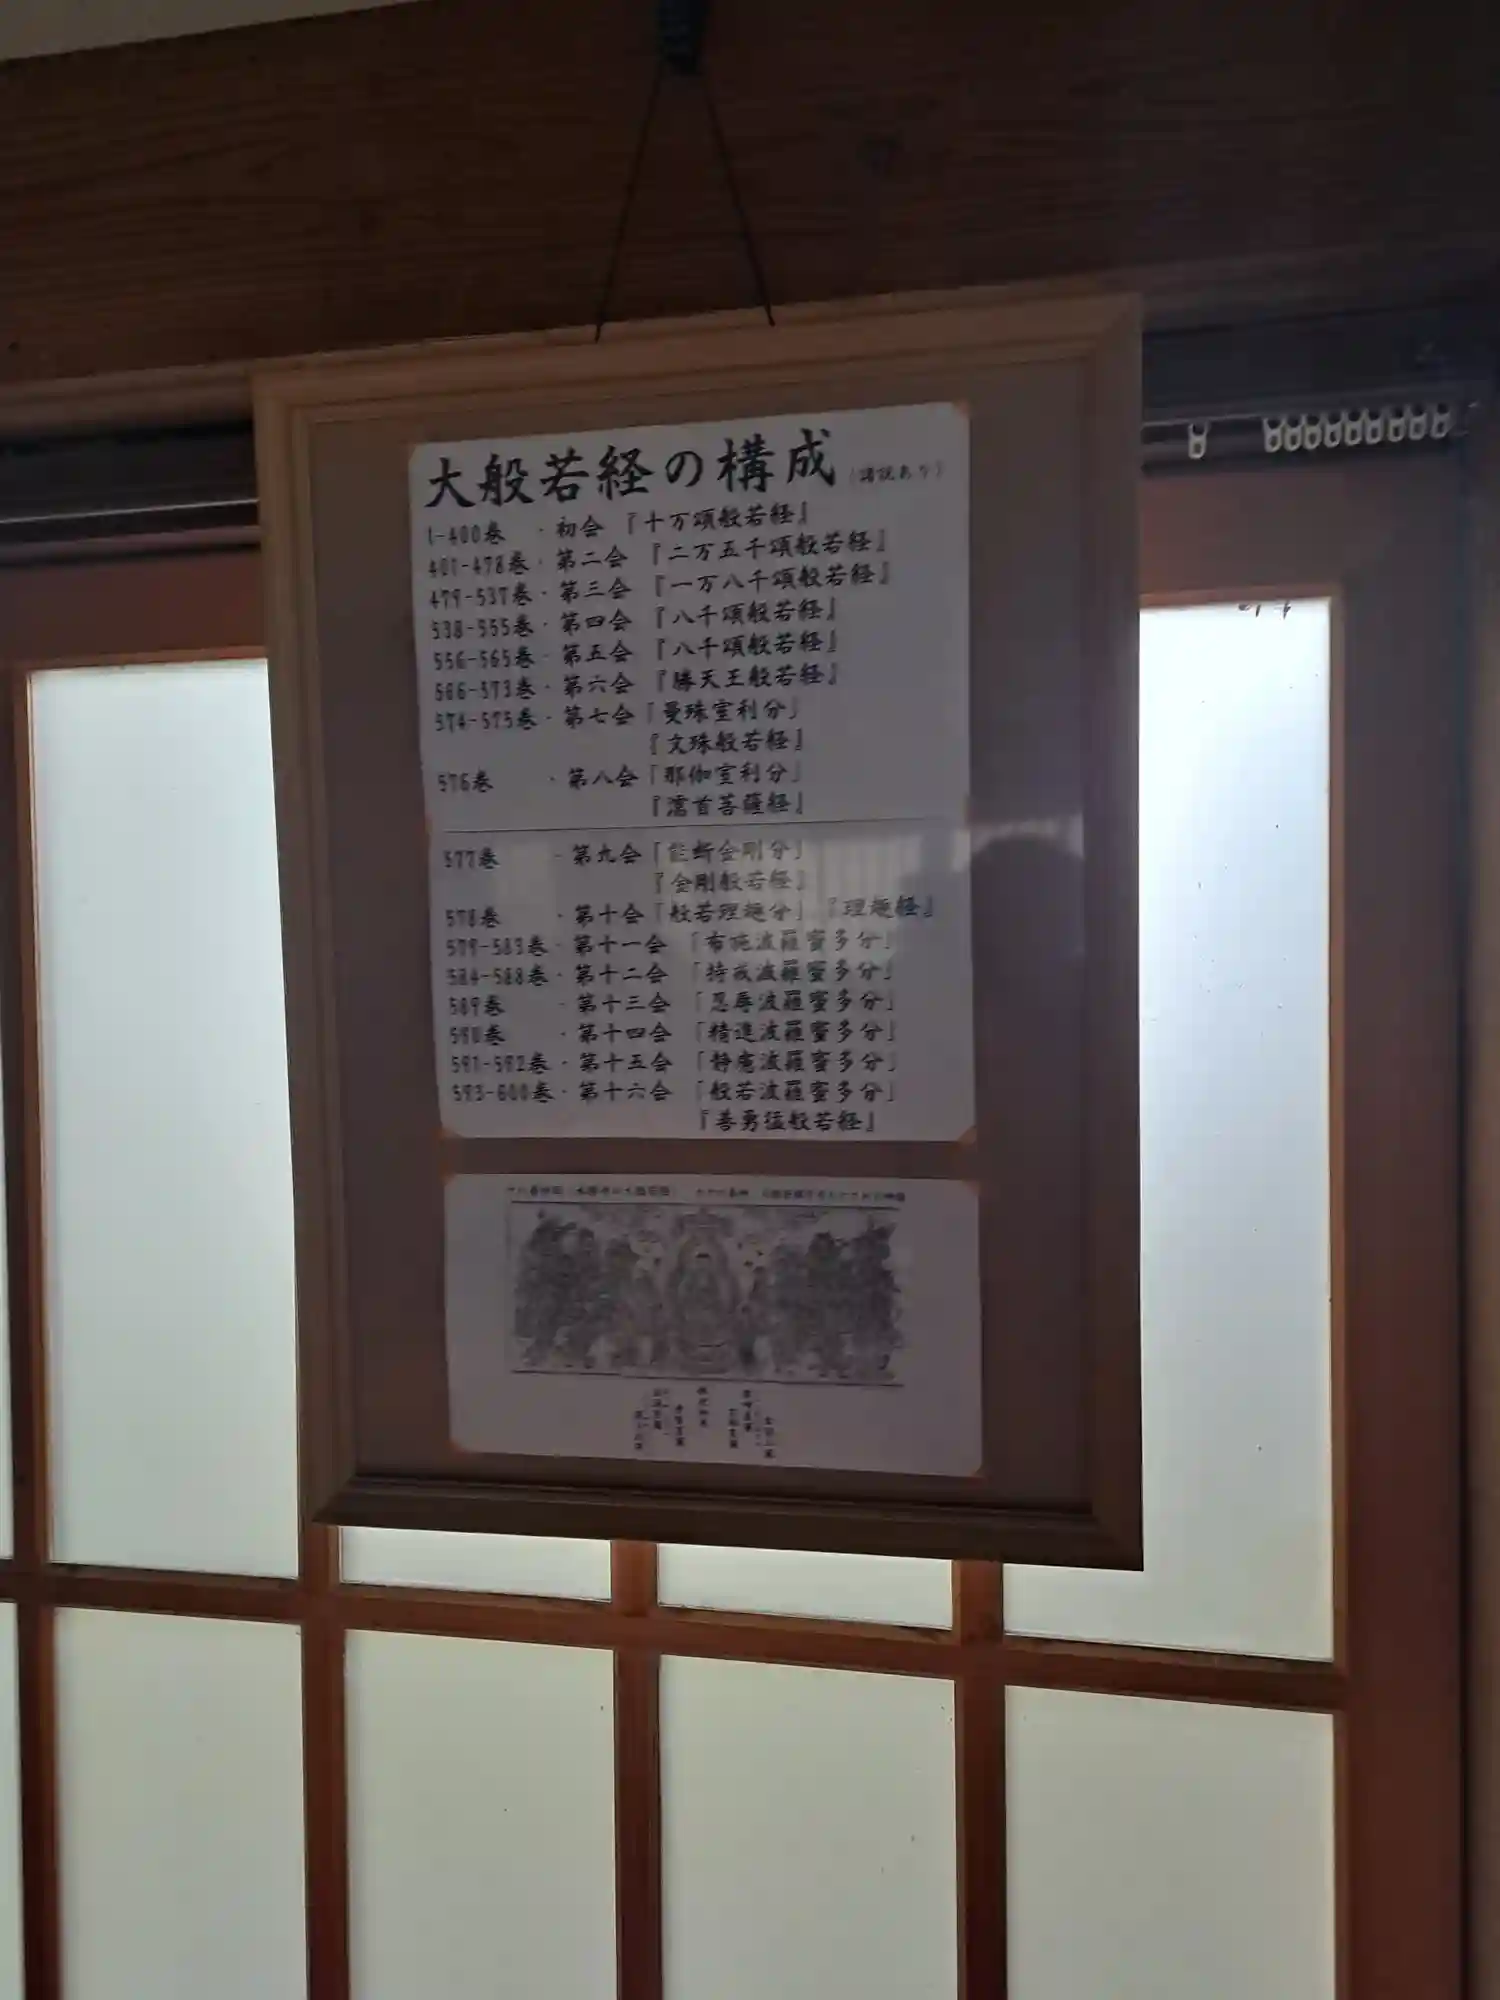 大般若経の構成 (諸説あり)
1-400巻 ・初会 『十万頌般若経』
401-478巻・第二会 『二万五千頌般若経』
479-537巻・第三会 『一万八千頌般若経』
538-555巻・第四会 『八千頌般若経』
556-565巻・第五会 『八千頌般若経』
566-573巻・第六会 『勝天王般若経』
574-575巻・第七会「曼殊室利分」
『文殊般若経』
576巻 ・第八会「那伽室利分」
『濡首菩薩経』
577巻 ・第九会「能断金剛分」
『金剛般若経』
578巻 ・第十会「般若理趣分」『理趣経』
579-583巻・第十一会 「布施波羅蜜多分」
584-588巻・第十二会 「持戒波羅蜜多分」
589巻 ・第十三会 「忍辱波羅蜜多分」
590巻 ・第十四会 「精進波羅蜜多分」
591-592巻・第十五会 「静慮波羅蜜多分」
593-600巻・第十六会 「般若波羅蜜多分」
『善勇猛般若経』